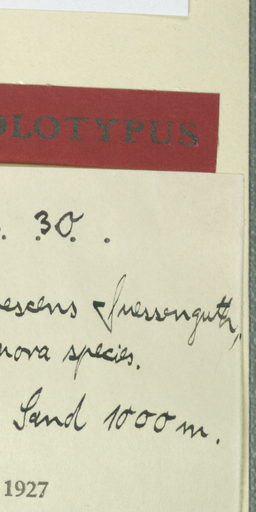 OLOTYPUS
. 30. .
escens Suessenguth,
nova species.
Sand 1000 m.
1927